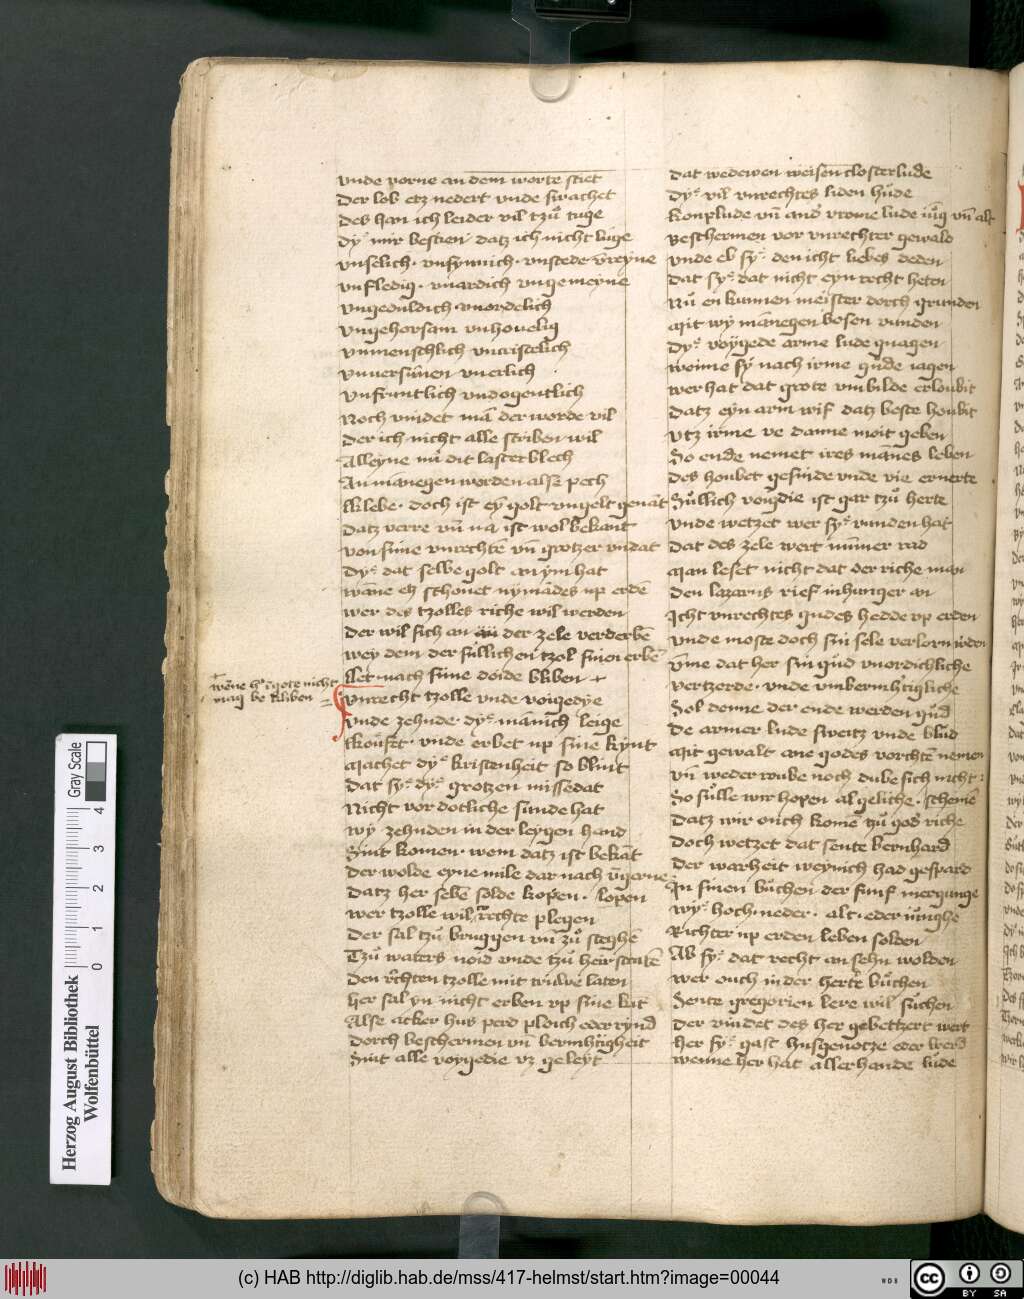 vnde vorne an dem worte stiet
Der lob etz nedert vnde swachet
des han ich leider vil tzů tuge
dy mir bestien datz ich nicht luge
vnselich · vnsynnich · vnstede vreyne
vnfledig · vnardich vngemeyne
vngeduldich vnordelich
vngehorsam vnhouelig
vnmenschlich vncristelich
vnuersunen vnerlich
vnfruntlich vndogentlich
Noch vindet mā der worde vil
Der ich nicht alle scriben wil
Alleyne mit dit laster blech
An manegen worden alse pech
Klebe · doch ist ey golt vngelt genāt
datz verre vn̄ na ist wol bekant
von sime vnrechtē vn̄ grotzer vndat
dy dat selbe golt an ym hat
wāne eh schonet nymādes up erdē
wer des tzolles riche wil werden
der wil sich an der zele verderbē
wey dem der sullichen tzol sinen erbē
Let nach sime dode bliben +
wēne h' gote nicht
mag be kliben =
vnrecht tzolle vnde voigedye
vnde zehnde · dy manich leige
Kouft · vnde erbet up sine kynt
Machet dy kristenheit so blint
dat sy dy grotzen missedat
Nicht vor dotliche sunde hat
wy zehnden in der leygen hand
Sint komen · wem datz ist bekāt
der wolde eyne mile dar nach v̄gerne
datz her selbē solde kopen · lopen
wer tzolle wil rechte plegen
der sal tzů bruggen vn̄ zů steghē
Tzů waters noid vnde tzů heirstratē
den rechten tzolle mit truwe laten
her sal yn nicht erben vp sine kit
Alse acker hus perd ploich eder rynd
dorch beschermen vn̄ bermhertigheit
Sint alle voygedie vz geleyt
dat wedewen weisen closterlude
dy vil vnrechtes liden hude
Konplude vn̄ and' vrome lude iūg vn̄ alt
Beschermen vor vnrechter gewald
vnde eb sy den icht liebes deden
dat sy dat nicht eyn recht heten
Nů en kunnen meister dorch grunden
Mit wy manegen bosen vunden
dy voygede arme lude gnagen
weinne sy nach irme gude iagen
wer hat dat grote vnbilde erloubit
datz eyn arm wif datz beste houbit
vtz irme ve danne moit geben
So ende nemet ires mānes leben
des houbet gesinde vnde vie ernerte
Sullich voigdie ist gar tzů herte
vnde wetzet wer sy vunden hat
dat des zele wert nimmer rad
Man leset nicht dat der riche man
den lazarus rief in hunger an
Icht vnrechtes gudes hedde vp erden
vnde moste doch sin sele verlorn wden
vme dat her sin gůd vnordichliche
vertzerde · vnde vmbermhertigliche
Sol denne der ende werden gůd
de armer lude sweitz vnde blůd
Mit gewalt ane godes vorchtē nemen
vn̄ weder roube noch dube sich nicht :
So sulle wir hopen al geliche · schemē
datz wir ouch komē tzů god' riche
doch wetzet dat sente bernhard
der warheit weynich had gespard
In sinen buchen der sunf inergunge
wy hoch neder · alt · eder iunghe
Richter up erden leben solden
Ab sy dat recht an sehn wolden
wer ouch in der herte buchen
Sente gregorien lere wil suchen
der vindet des her gebettzert wert
her sy gast husgenotze eder werd
wenne her hat allerhande lude
Herzog August Bibliothek
Wolfenbüttel
Gray Scale
0 1 2 3 4
(c) HAB http://diglib.hab.de/mss/417-helmst/start.htm?image=00044
WDB
cc BY SA